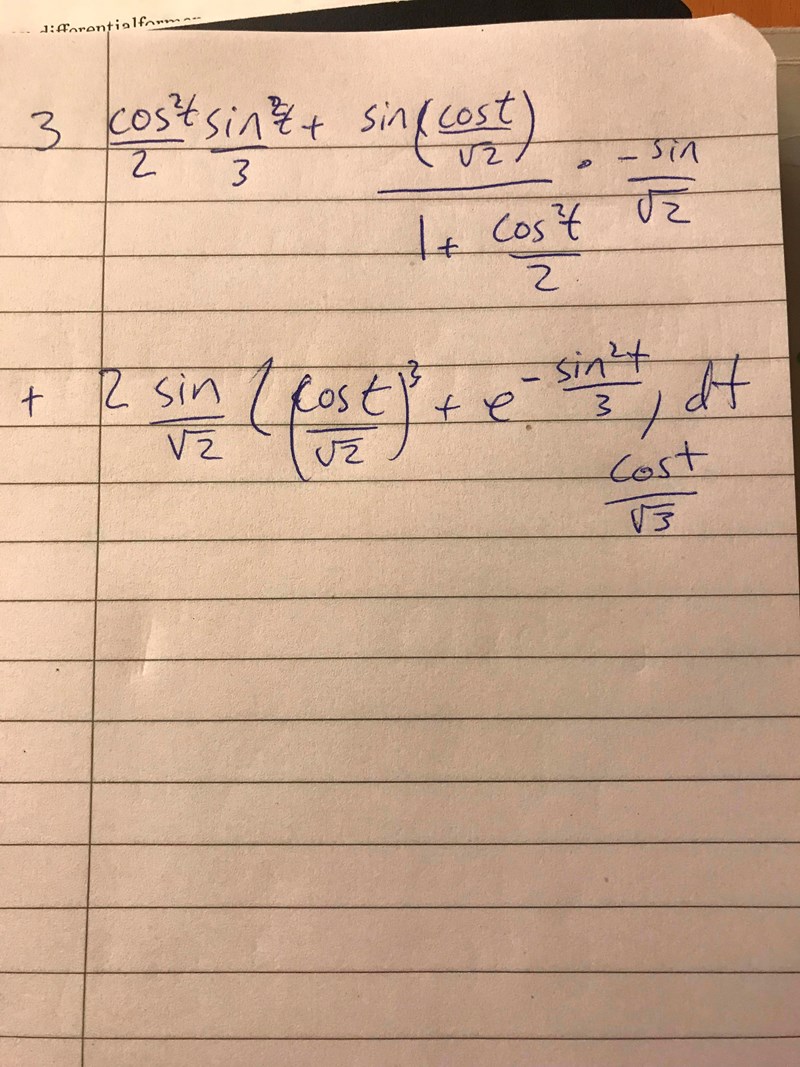 differentialformer
3 cos²t/2 sin²t/3 + sin(cost/√2)/(1 + cos²t/2) · -sin/√2
+ 2 sin/√2 ((cost/√2)³ + e^(-sin²t/3), dt
cost/√3